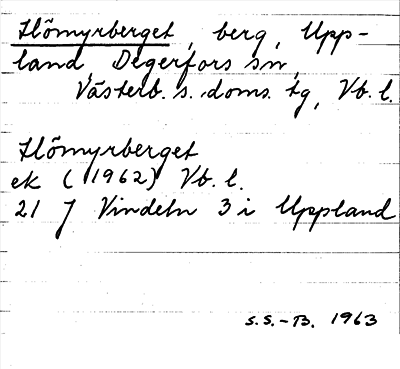 Hömyrberget, berg, Upp-
land, Degerfors sn,
Västerb. s. doms. tg, Vb. l.
Hömyrberget
ek (1962) Vb. l.
21 J Vindeln 3 i Uppland
S.S.-B. 1963